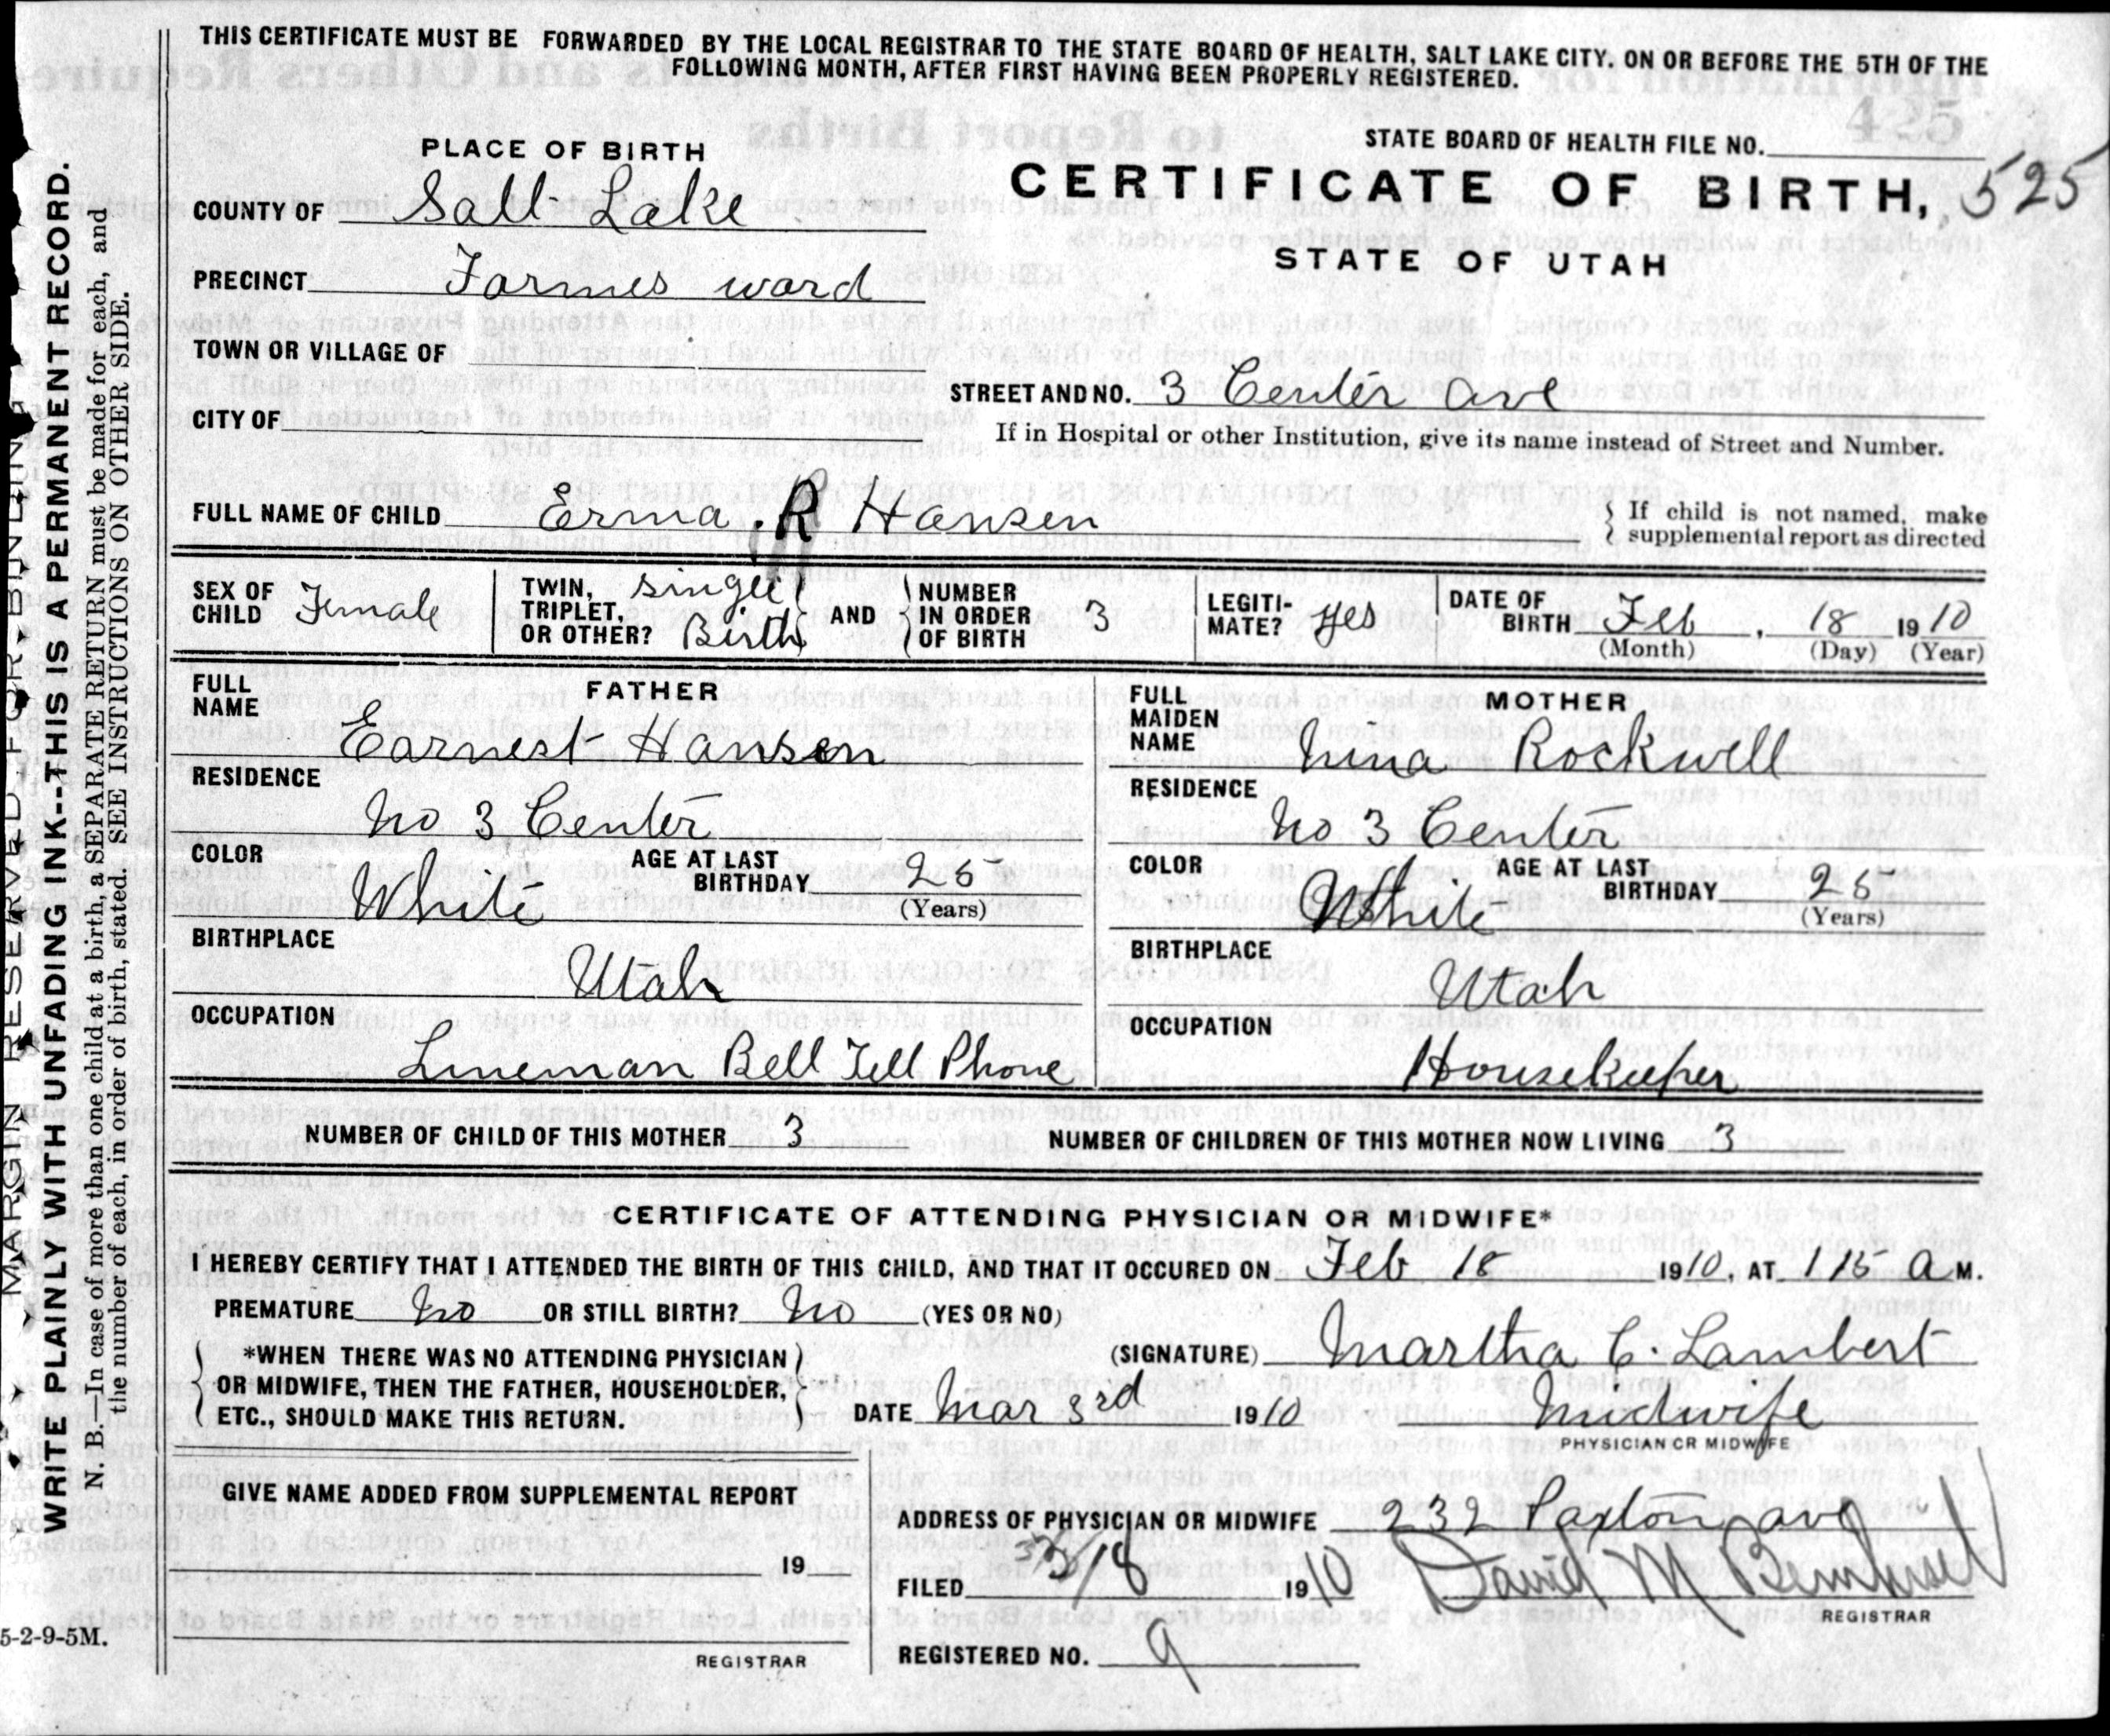 THIS CERTIFICATE MUST BE FORWARDED BY THE LOCAL REGISTRAR TO THE STATE BOARD OF HEALTH, SALT LAKE CITY. ON OR BEFORE THE 5TH OF THE
FOLLOWING MONTH, AFTER FIRST HAVING BEEN PROPERLY REGISTERED.
PLACE OF BIRTH
STATE BOARD OF HEALTH FILE NO.
CERTIFICATE OF BIRTH, 525
STATE OF UTAH
COUNTY OF Salt Lake
PRECINCT Farmes ward
TOWN OR VILLAGE OF
STREET AND NO. 3 Center ave
CITY OF
If in Hospital or other Institution, give its name instead of Street and Number.
FULL NAME OF CHILD Erma R Hansen
If child is not named, make
supplemental report as directed
SEX OF CHILD Female
TWIN, TRIPLET, OR OTHER? single Birth AND NUMBER IN ORDER OF BIRTH 3
LEGITIMATE? yes
DATE OF BIRTH Feb, 18 1910
(Month) (Day) (Year)
FATHER
FULL NAME Earnest Hansen
RESIDENCE No 3 Center
COLOR White AGE AT LAST BIRTHDAY 25
(Years)
BIRTHPLACE Utah
OCCUPATION Lineman Bell Tell Phone
MOTHER
FULL MAIDEN NAME Nina Rockwell
RESIDENCE No 3 Center
COLOR White AGE AT LAST BIRTHDAY 25
(Years)
BIRTHPLACE Utah
OCCUPATION Housekeeper
NUMBER OF CHILD OF THIS MOTHER 3 NUMBER OF CHILDREN OF THIS MOTHER NOW LIVING 3
CERTIFICATE OF ATTENDING PHYSICIAN OR MIDWIFE*
I HEREBY CERTIFY THAT I ATTENDED THE BIRTH OF THIS CHILD, AND THAT IT OCCURED ON Feb 18 1910, AT 115 a M.
PREMATURE No OR STILL BIRTH? No (YES OR NO)
*WHEN THERE WAS NO ATTENDING PHYSICIAN
OR MIDWIFE, THEN THE FATHER, HOUSEHOLDER,
ETC., SHOULD MAKE THIS RETURN.
(SIGNATURE) Martha C. Lambert
DATE Mar 3rd 1910 Midwife
PHYSICIAN OR MIDWIFE
GIVE NAME ADDED FROM SUPPLEMENTAL REPORT
19
REGISTRAR
ADDRESS OF PHYSICIAN OR MIDWIFE 232 Paxton ave
FILED 3/18 1910 David M
REGISTRAR
REGISTERED NO. 9
5-2-9-5M.
MARGIN RESERVED FOR BINDING
WRITE PLAINLY WITH UNFADING INK--THIS IS A PERMANENT RECORD.
N. B.—In case of more than one child at a birth, a SEPARATE RETURN must be made for each, and
the number of each, in order of birth, stated. SEE INSTRUCTIONS ON OTHER SIDE.